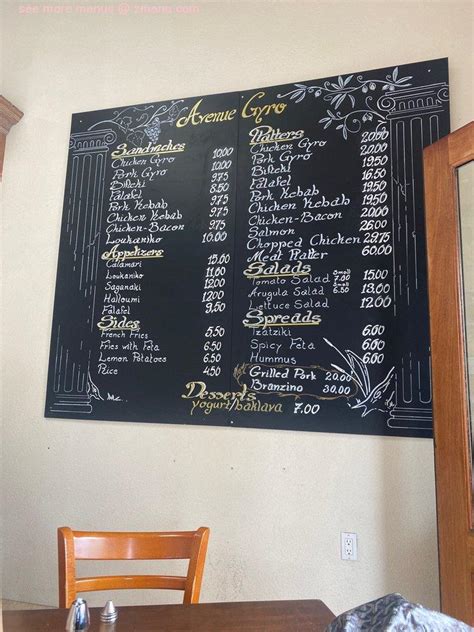 see more menus @ zmenu.com
Avenue Gyro
Sandwiches
Chicken Gyro 10.00
Pork Gyro 10.00
Bifteki 9.75
Falafel 8.50
Pork Kebab 9.75
Chicken Kebab 9.75
Chicken-Bacon 9.75
Loukaniko 10.00
Appetizers
Calamari 15.00
Loukaniko 11.00
Saganaki 12.00
Halloumi 12.00
Falafel 9.50
Sides
French Fries 5.50
Fries with Feta 6.50
Lemon Potatoes 6.50
Rice 4.50
Platters
Chicken Gyro 20.00
Pork Gyro 20.00
Bifteki 19.50
Falafel 16.50
Pork Kebab 19.50
Chicken Kebab 19.50
Chicken-Bacon 20.00
Salmon
Chopped Chicken
Meat Platter 60.00
Salads
Tomato Salad Small 15.00
Arugula Salad Small 13.00
Lettuce Salad 12.00
Spreads
Tzatziki 6.00
Spicy Feta 6.00
Hummus 6.00
Grilled Pork 20.00
Branzino 30.00
Desserts
yogurt/baklava 7.00